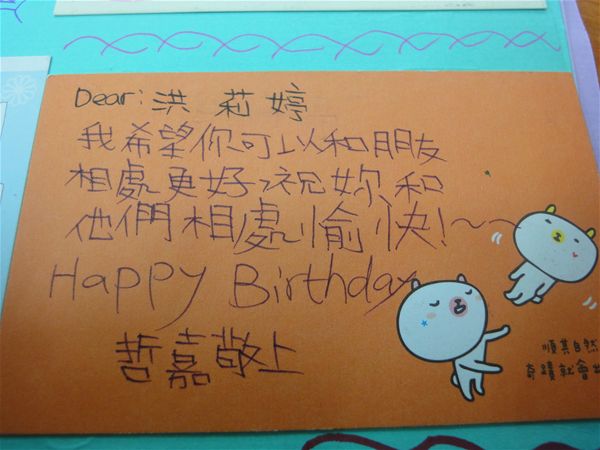 Dear: 洪莉婷
我希望你可以和朋友
相處更好,祝妳和
他們相處愉快!~~
Happy Birthday
哲嘉敬上
順其自然
奇蹟就會出